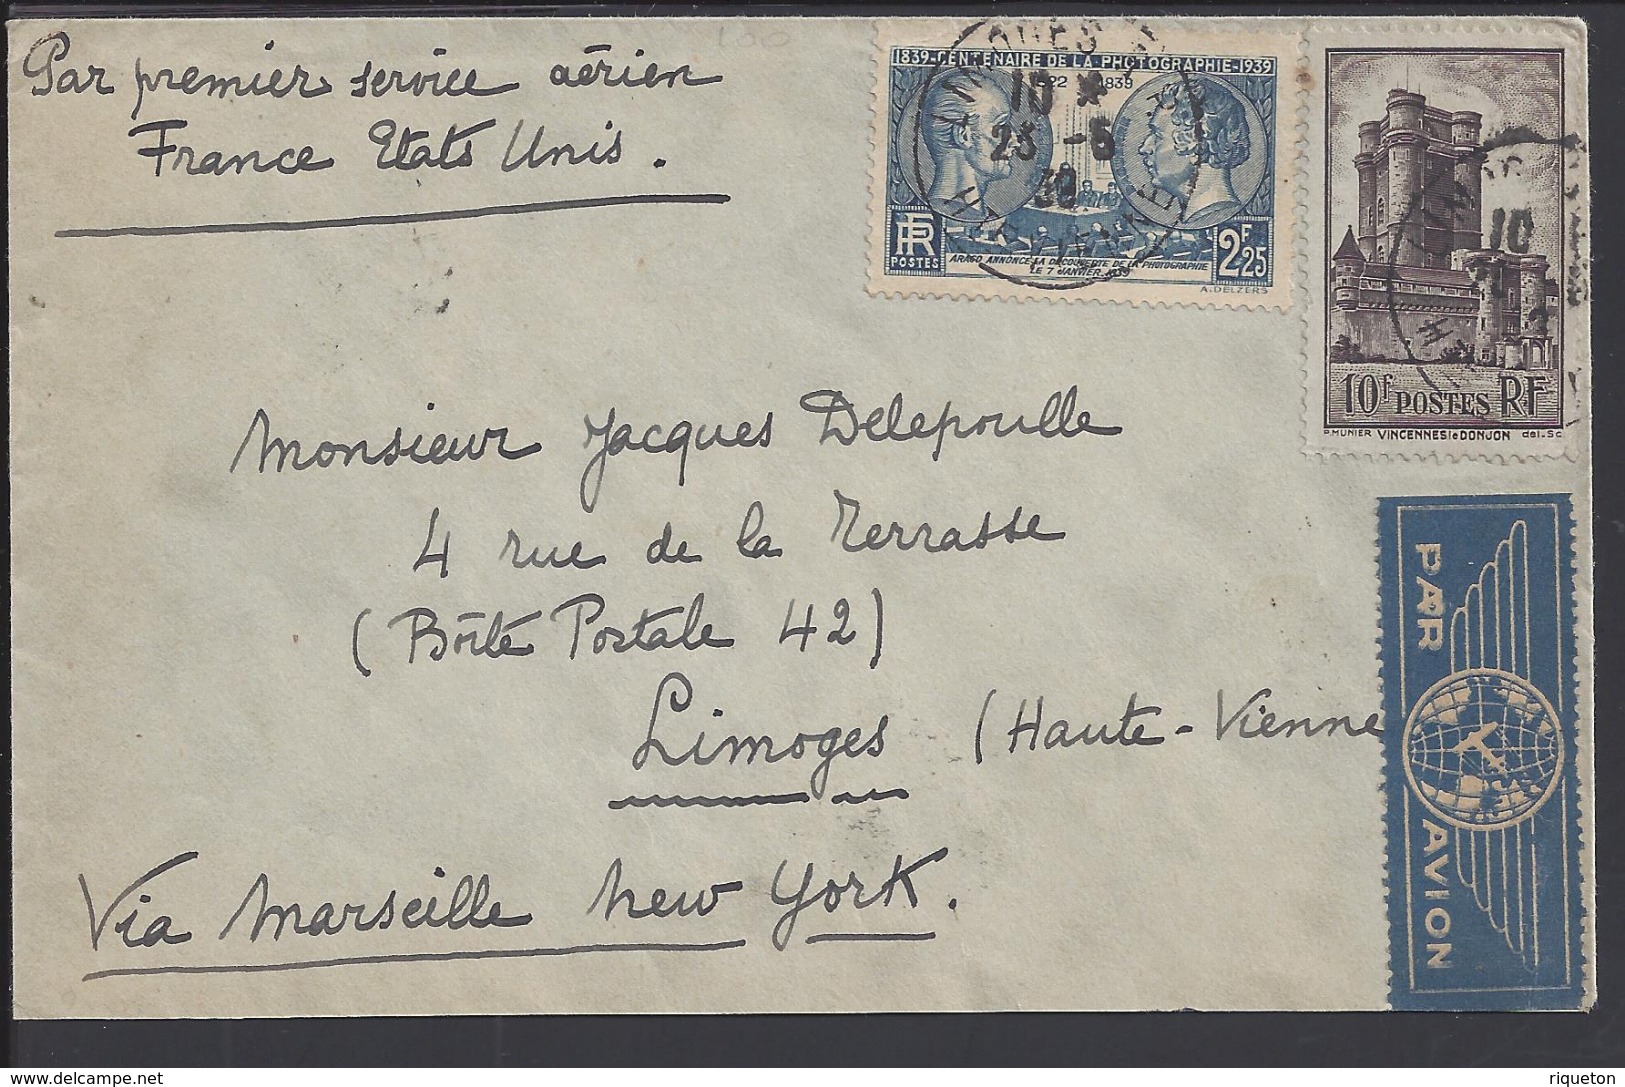 Par premier service aérien
France Etats Unis.
1839-CENTENAIRE DE LA PHOTOGRAPHIE-1939
1839
RF
POSTES
ARAGO ANNONCE LA DÉCOUVERTE DE LA PHOTOGRAPHIE
LE 7 JANVIER 1839
2F25
A. DELZERS
LIMOGES
10
23 -5
39
HTE VIENNE
10
10f POSTES RF
P. MUNIER VINCENNES le DONJON del. Sc
Monsieur Jacques Delepoulle
4 rue de la Terrasse
(Boîte Postale 42)
Limoges (Haute-Vienne
Via Marseille New York.
PAR AVION
www.delcampe.net
riqueton